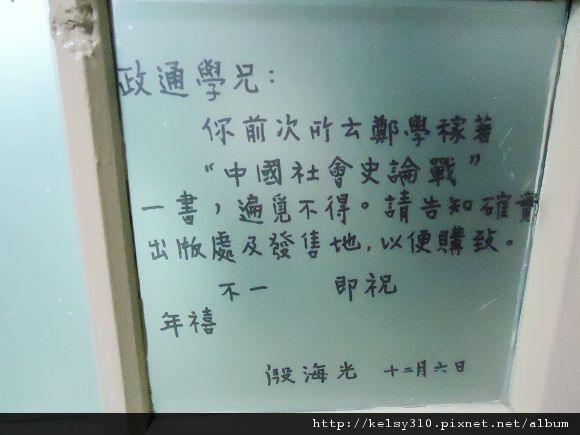 政通學兄：
你前次所云鄭學稼著
“中國社會史論戰”
一書，遍覓不得。請告知確實
出版處及發售地，以便購致。
不一　即祝
年禧
殷海光　十二月六日
http://kelsy310.pixnet.net/album